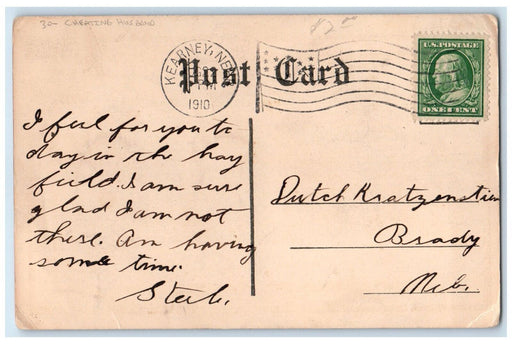 30- CHEATING HUSBAND
$2.00
KEARNEY, NEB
1910
U.S. POSTAGE
ONE CENT
Post Card
I feel for you to
day in the hay
field. I am sure
glad I am not
there. Am having
some time.
Dutch Kratzenstein
Brady
Neb.